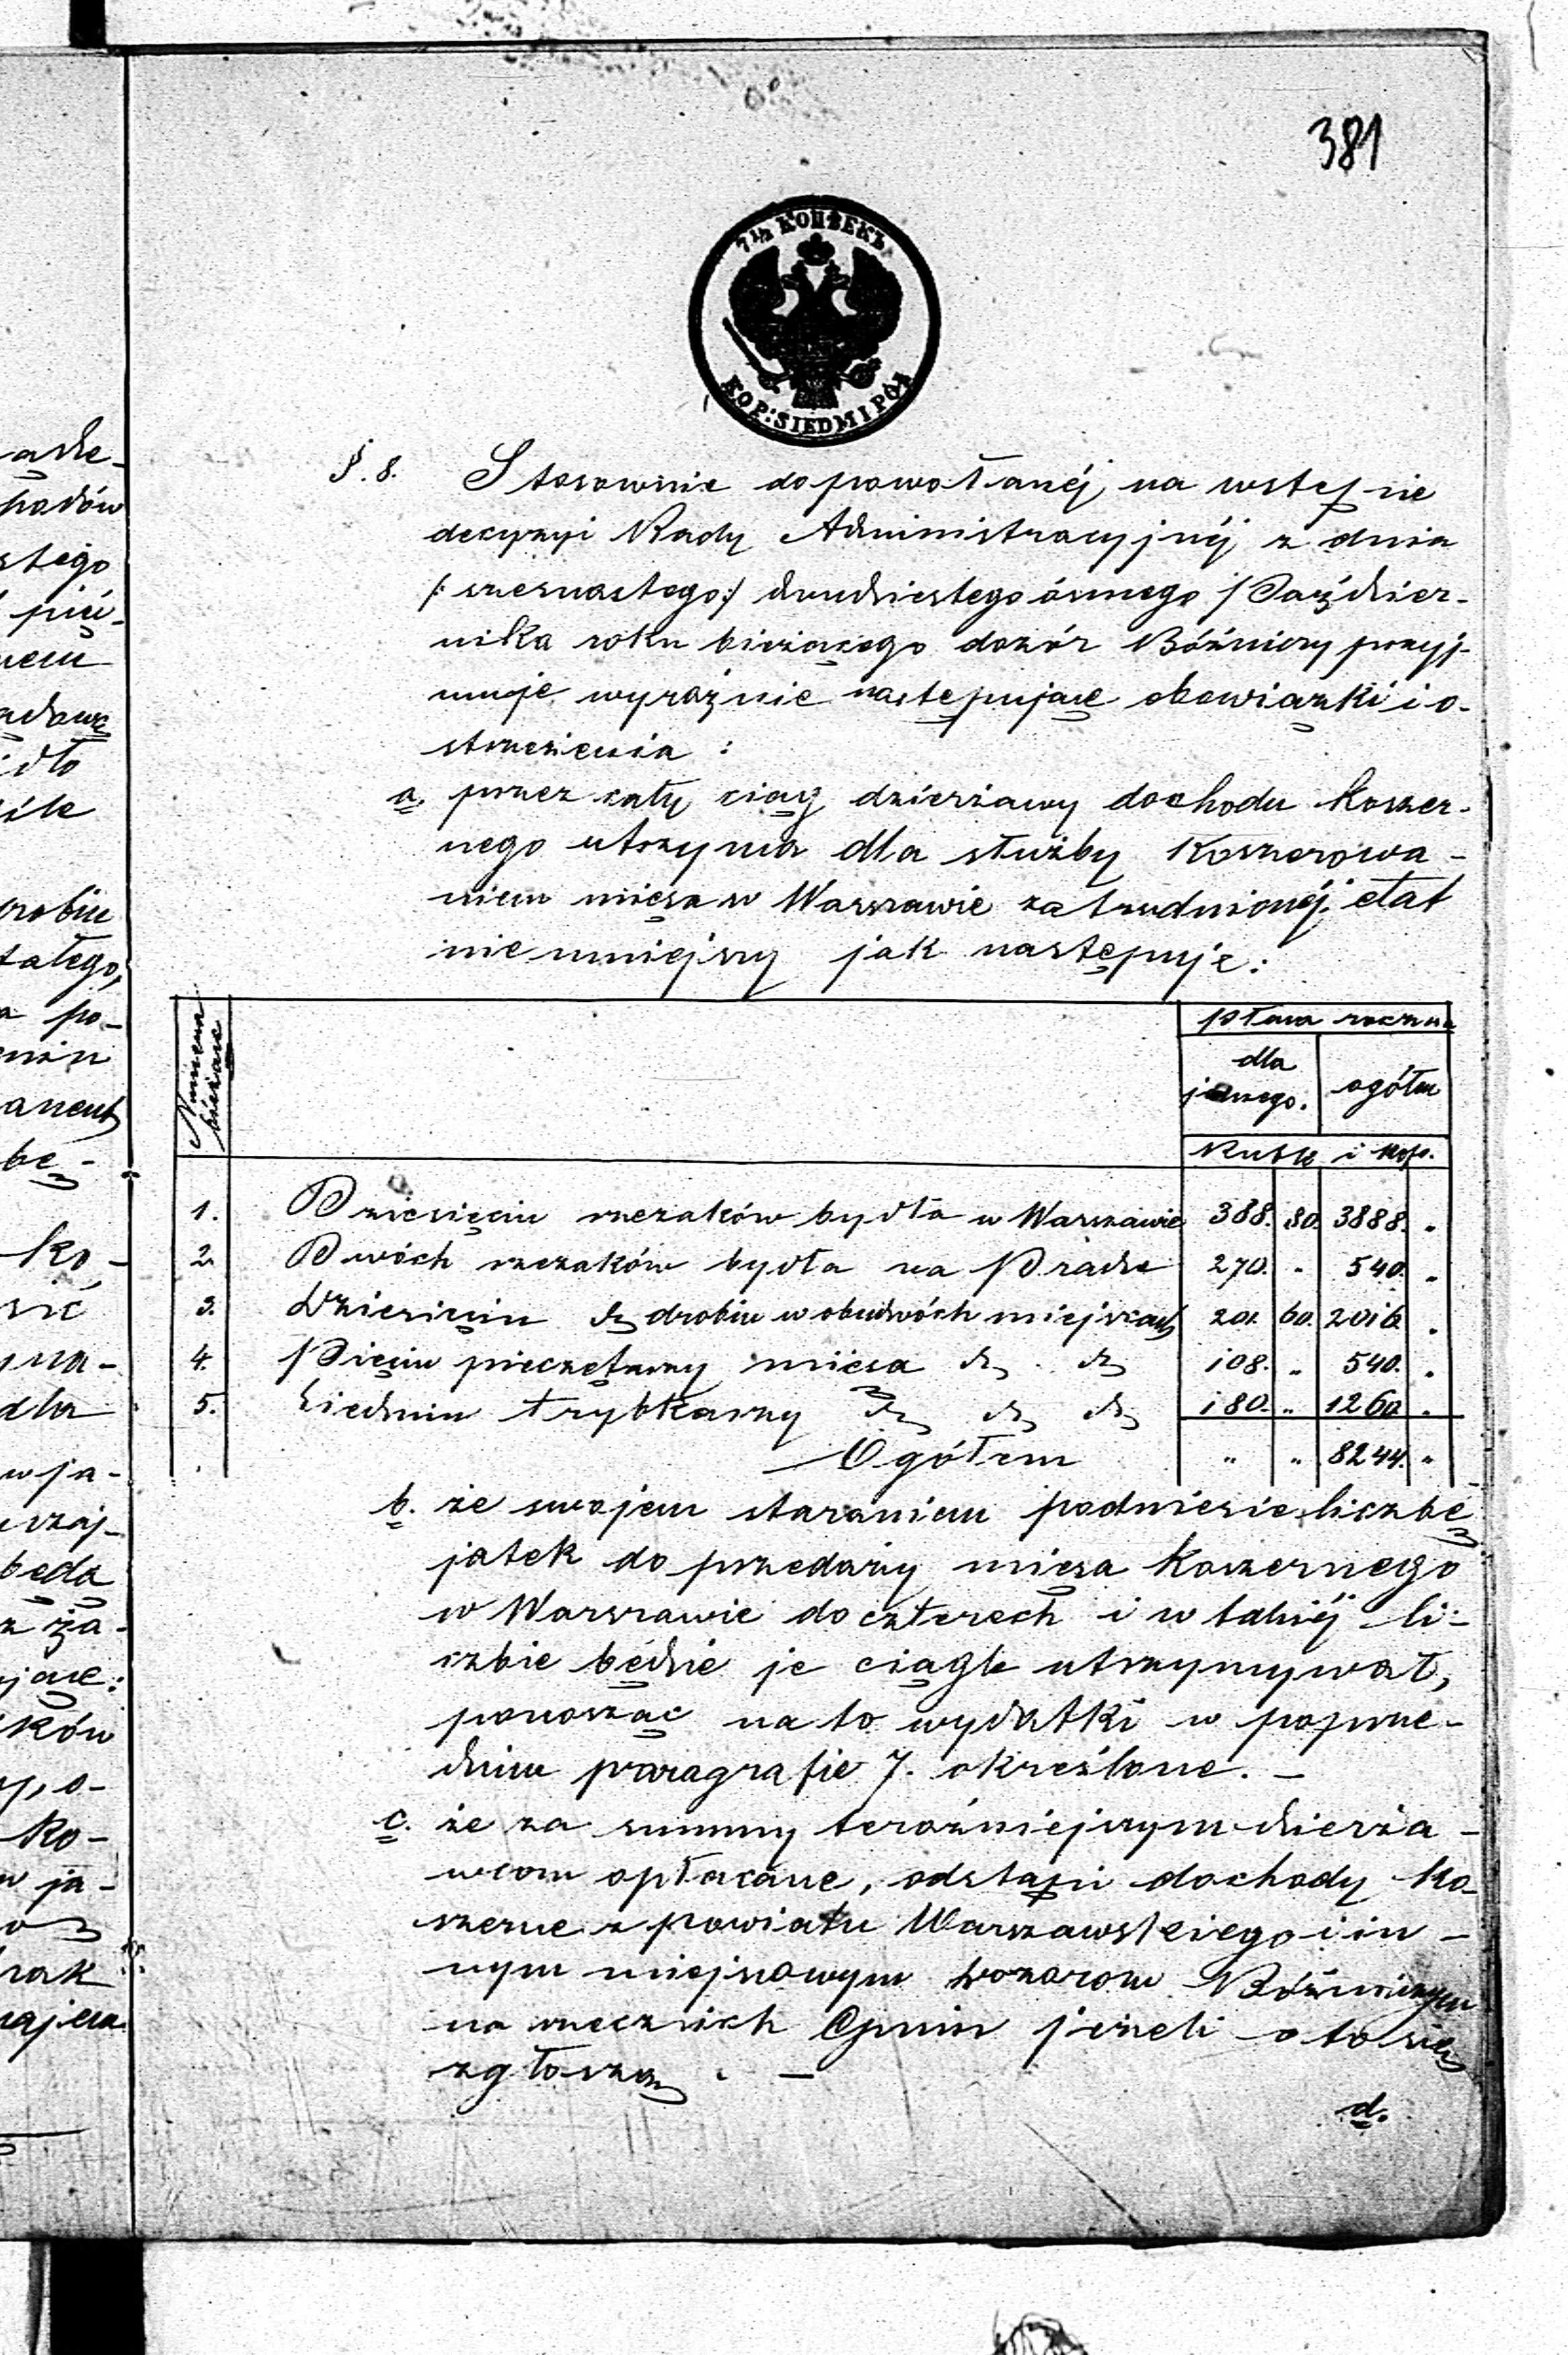 381
7 1/2 КОПѢЕКЪ
KOP: SIEDM I PÓŁ
§. 8. Stosownie do powołanéj na wstępie
decyzyi Rady Administracyjnéj z dnia
/: szesnastego :/ dwudziestego ósmego Paździer-
nika roku bieżącego dozór Bóżniczy przyj-
muje wyraźnie następujące obowiązki i o-
strzeżenia :
a. przez cały ciąg dzierżawy dochodu koszer-
nego utrzyma dla służby koszerowa-
niem mięsa w Warszawie zatrudnionéj etat
nie mniejszy jak następuje:
Numera bieżące
płaca roczna
dla jednego. ogółem
Rubli i kop.
1. Dziesięciu rzezaków bydła w Warszawie 388. 80. 3888. "
2. Dwóch rzezaków bydła na Pradze 270. " 540. "
3. Dziesięciu dto drobiu w obudwóch miejscach 201. 60. 2016 "
4. Pięciu pieczętarzy mięsa dto dto 108. " 540. "
5. Siedmiu trybkarzy dto dto dto 180. " 1260 "
Ogółem " " 8244. "
b. że swojem staraniem podniesie liczbę
jatek do przedaży mięsa koszernego
w Warszawie do czterech i w takiéj li-
czbie będzie je ciągle utrzymywał,
ponosząc na to wydatki w poprze-
dnim paragrafie 7. określone. –
c. że za summy teraźniejszym dzierża-
wcom opłacane, odstąpi dochody ko-
szerne z powiatu Warszawskiego i in-
nym miejscowym dozorom Bóżniczym
na rzecz ich Gmin jeżeli o to się
zgłoszą . –
d.
aske-
hodów
stego
pię-
adowe
idło
ile
robiu
całego,
a po-
anent
bę-
ko-
sić
yma-
dla
w ja-
czaj-
będą
z za-
jące:
ków
y, o-
ko-
w ja-
rak